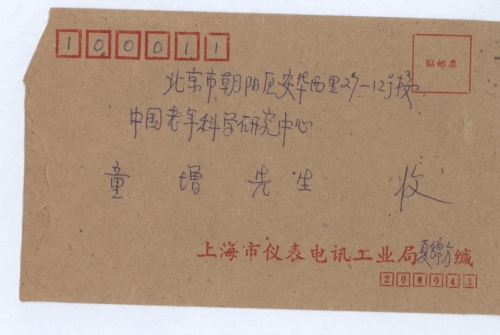 100011
贴邮票
北京市朝阳区安华西里27-12号楼
中国老年科学研究中心
童增先生 收
上海市仪表电讯工业局 夏锦 缄
200041